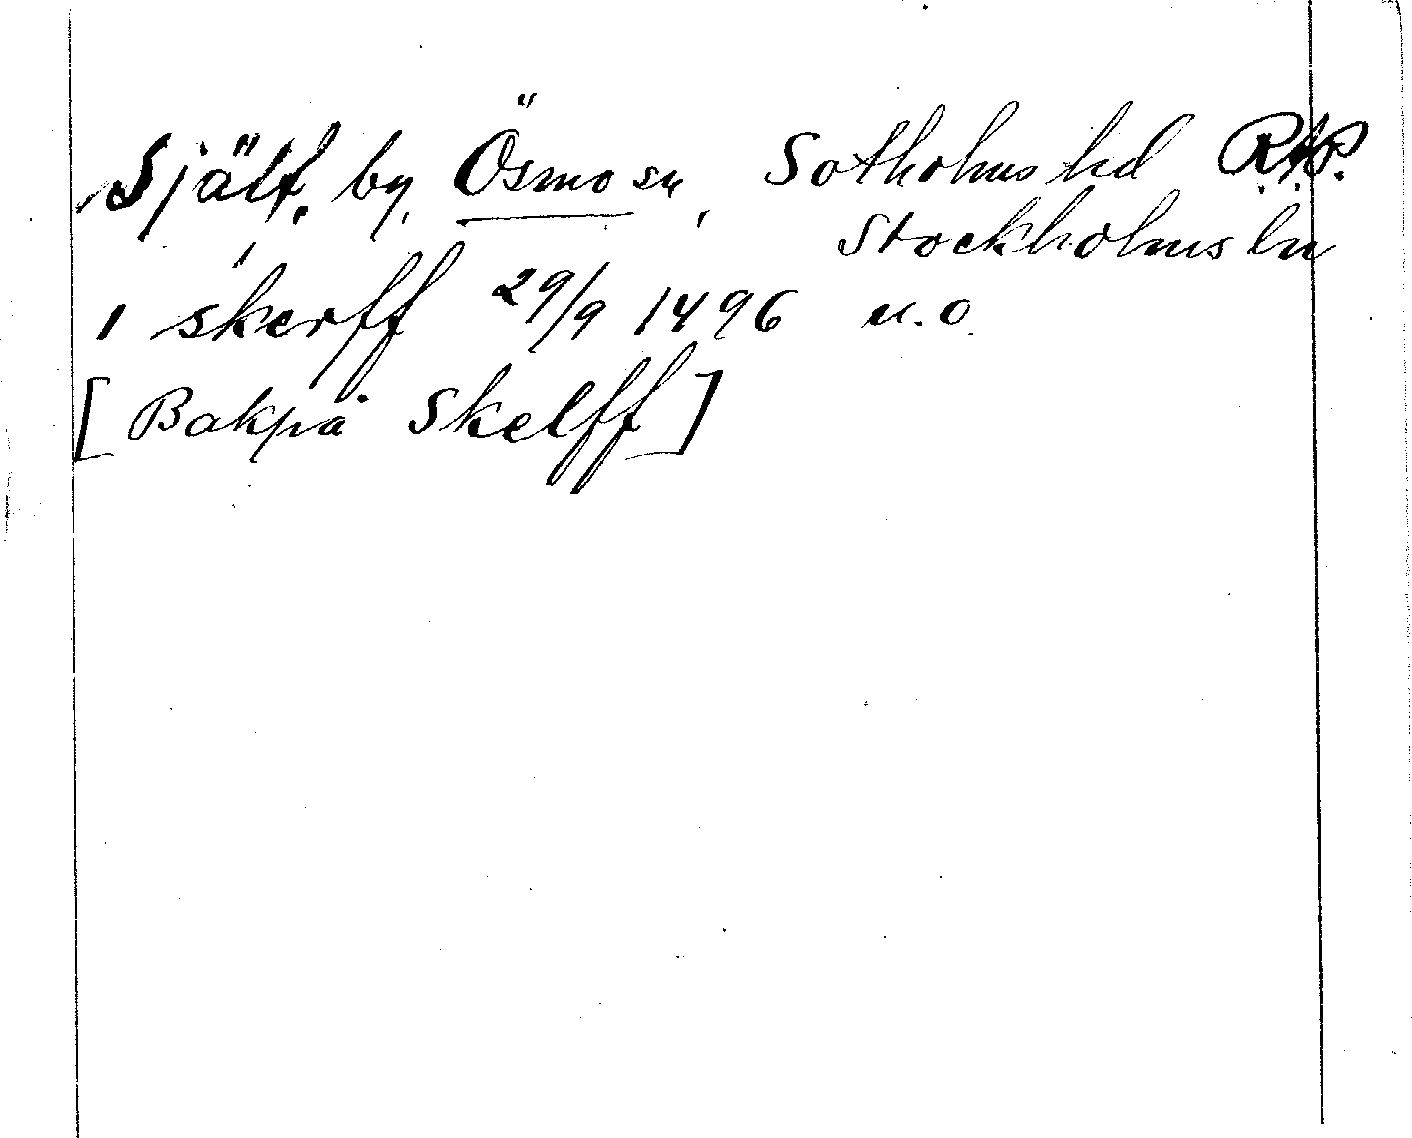 Själf, by, Ösmo sn, Sotholms hd R.A.P.
Stockholms ln
i skerff 29/9 1496 u.o.
[Bakpå Skelff]